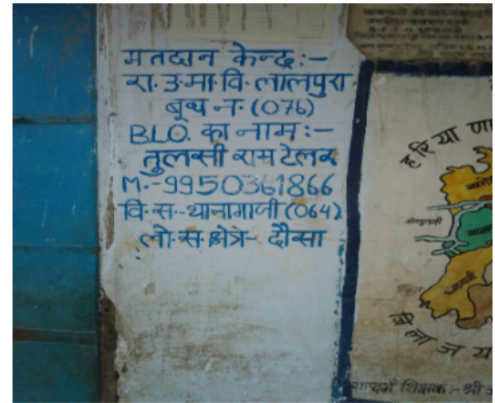 मतदान केन्द्र:-
रा.उ.मा.वि.लालपुरा
बूथ न.(076)
B.L.O. का नाम:-
तुलसी राम टेलर
M.-9950361866
वि.स.-थानागाजी (064)
लो.स.क्षेत्र- दौसा
हरियाणा
शिक्षक:- श्री